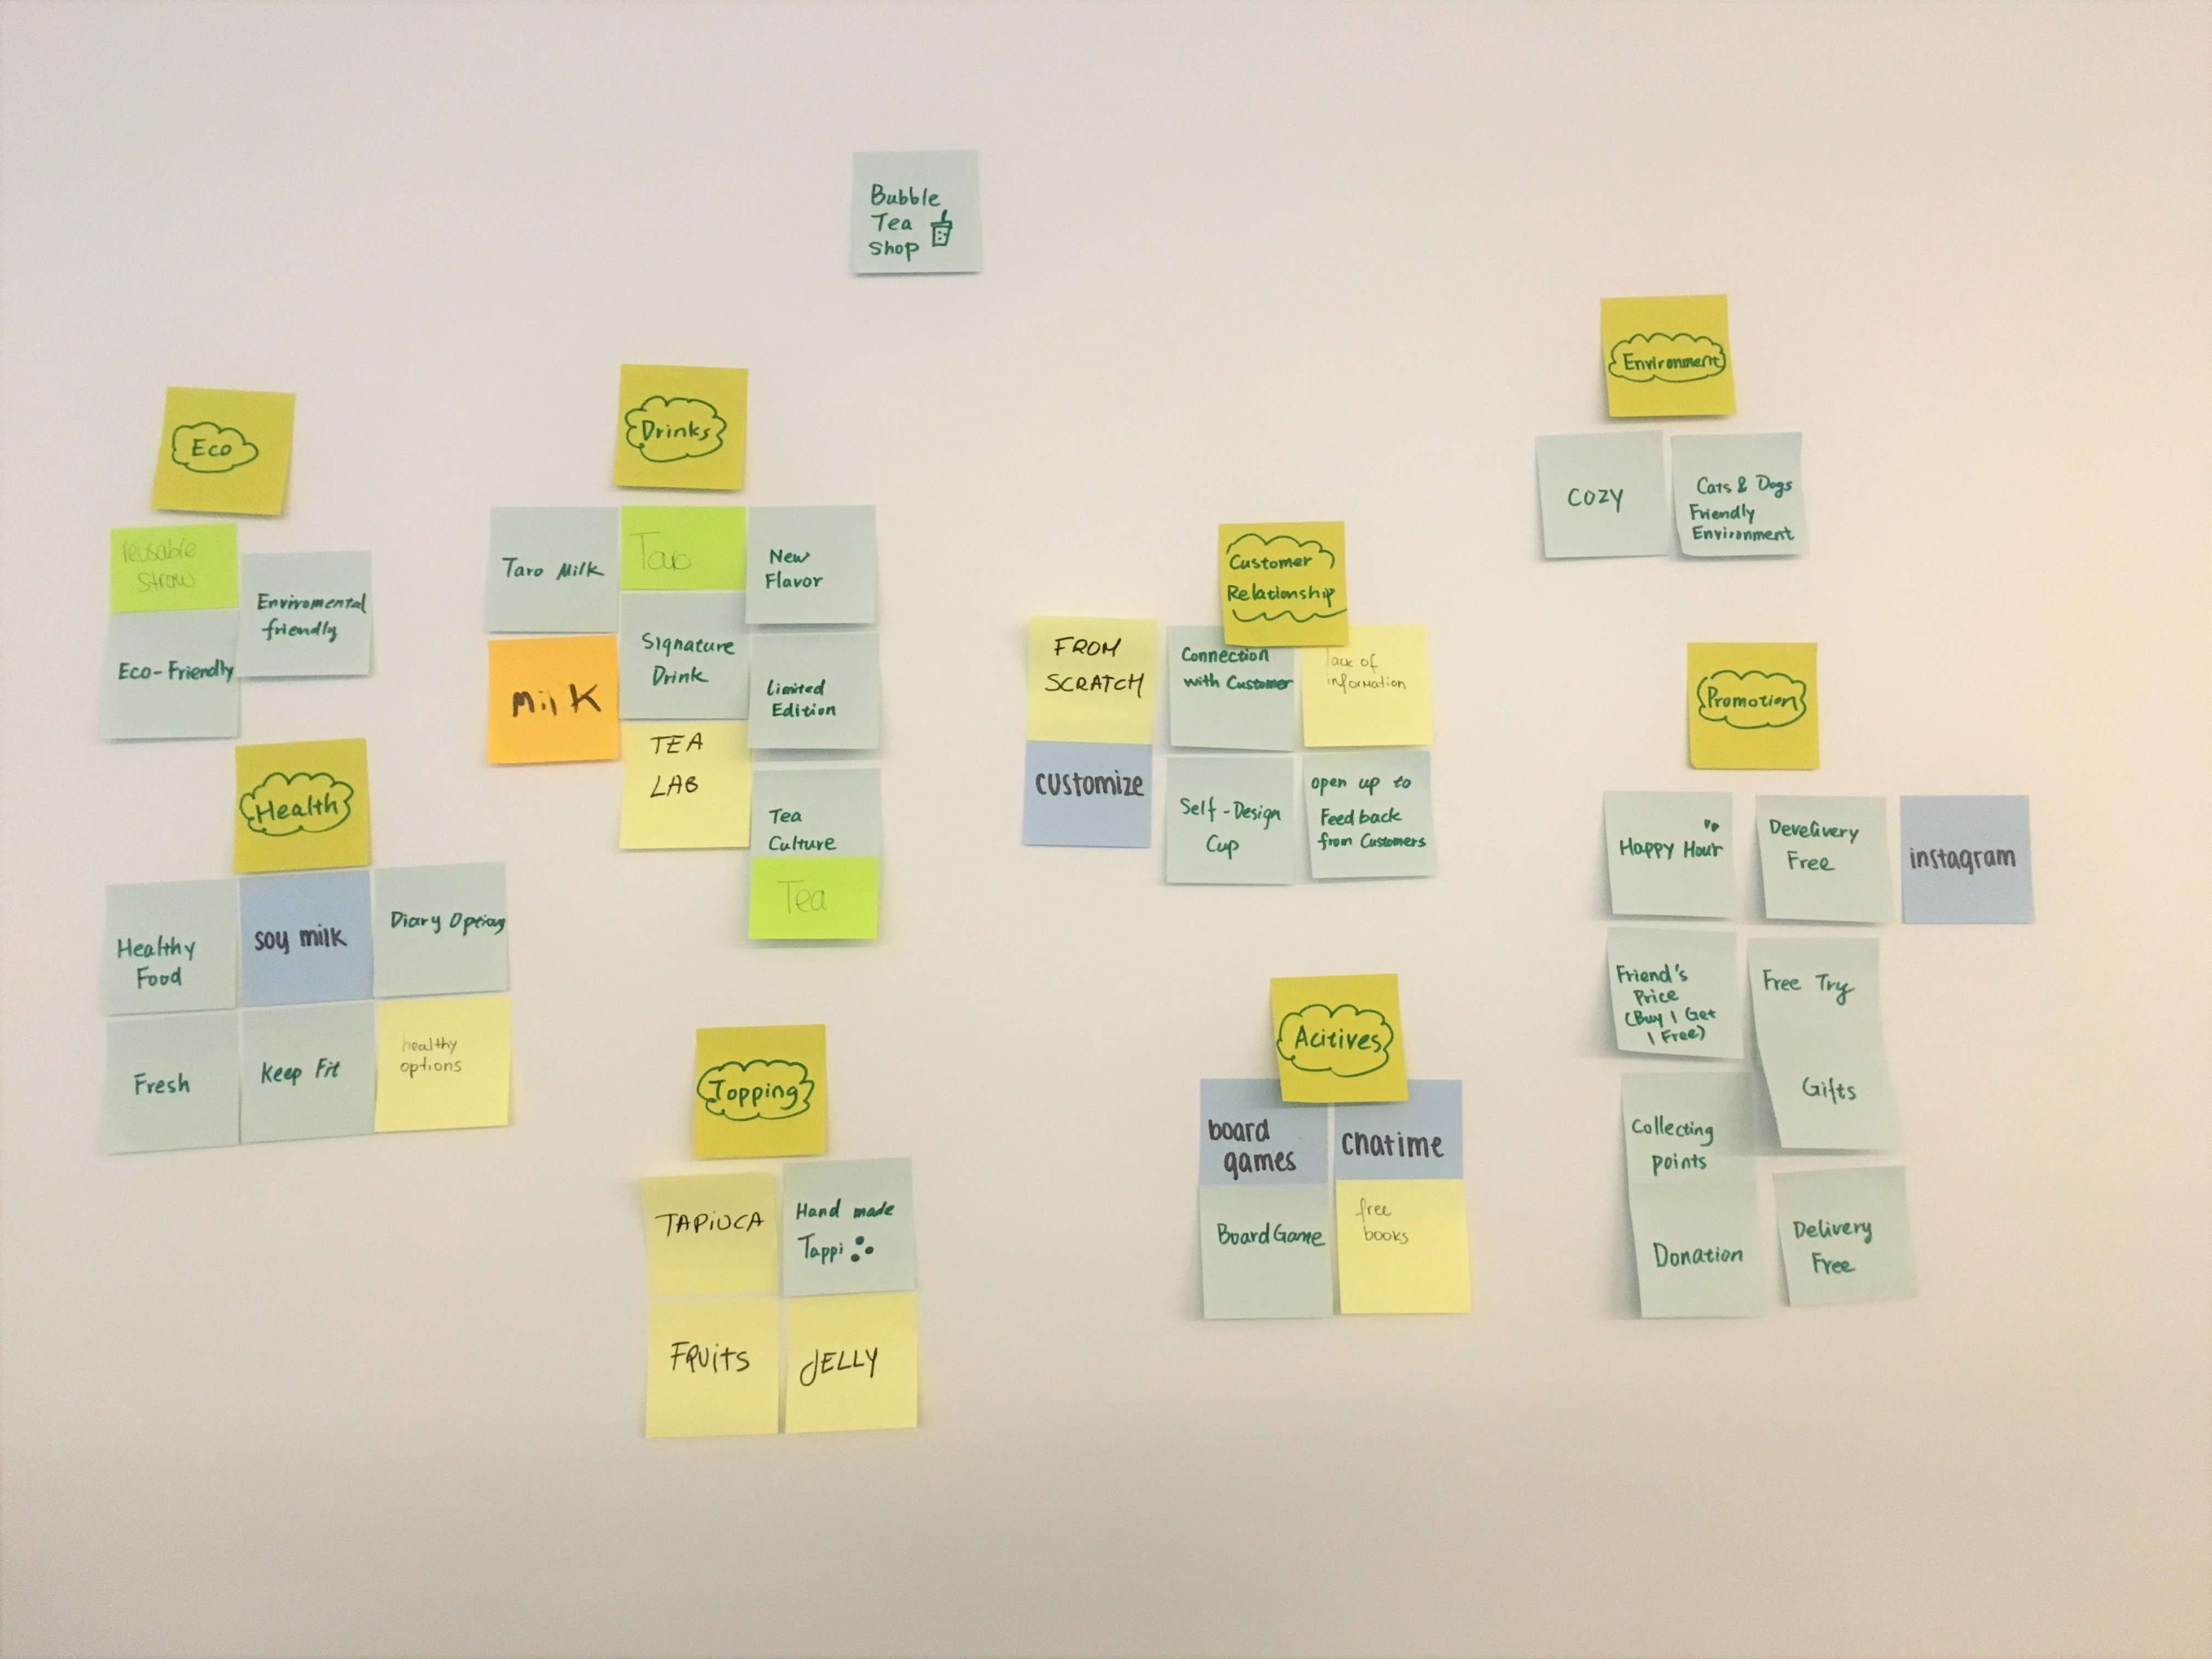 Bubble
Tea
Shop
Eco
reusable
straw
Enviromental
friendly
Eco-Friendly
Health
Healthy
Food
soy milk
Diary Options
Fresh
Keep Fit
healthy
options
Drinks
Taro Milk
Taro
New
Flavor
Milk
Signature
Drink
Limited
Edition
TEA
LAB
Tea
Culture
Tea
Topping
TAPIOCA
Hand made
Tappi
FRUITS
JELLY
Customer
Relationship
FROM
SCRATCH
Connection
with Customer
lack of
information
customize
Self-Design
Cup
open up to
Feedback
from Customers
Acitives
board
games
chatime
BoardGame
free
books
Environment
COZY
Cats & Dogs
Friendly
Environment
Promotion
Happy Hour
Develivery
Free
instagram
Friend's
Price
(Buy 1 Get
1 Free)
Free Try
Gifts
Collecting
points
Donation
Delivery
Free